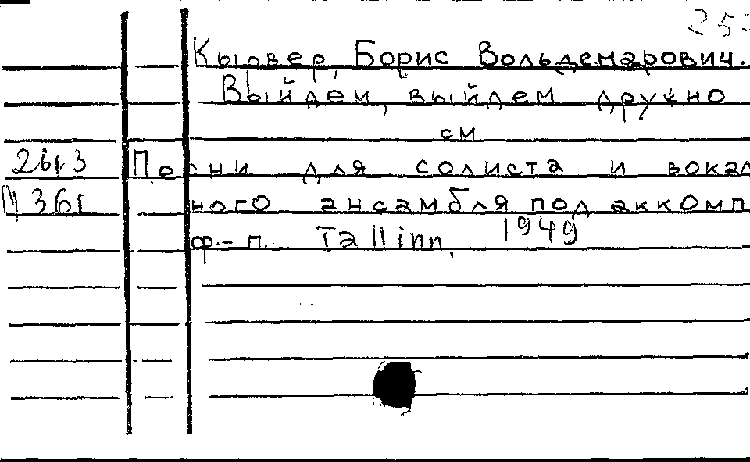 Кырвер, Борис Вольдемарович.
Выйдем, выйдем дружно
см
Песни для солиста и вокал
ного ансамбля под аккомп
ф-п. Tallinn, 1949